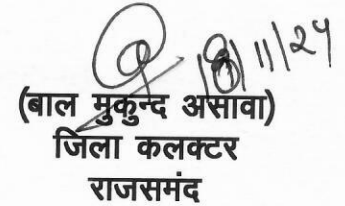 18/11/24
(बाल मुकुन्द असावा)
जिला कलक्टर
राजसमंद